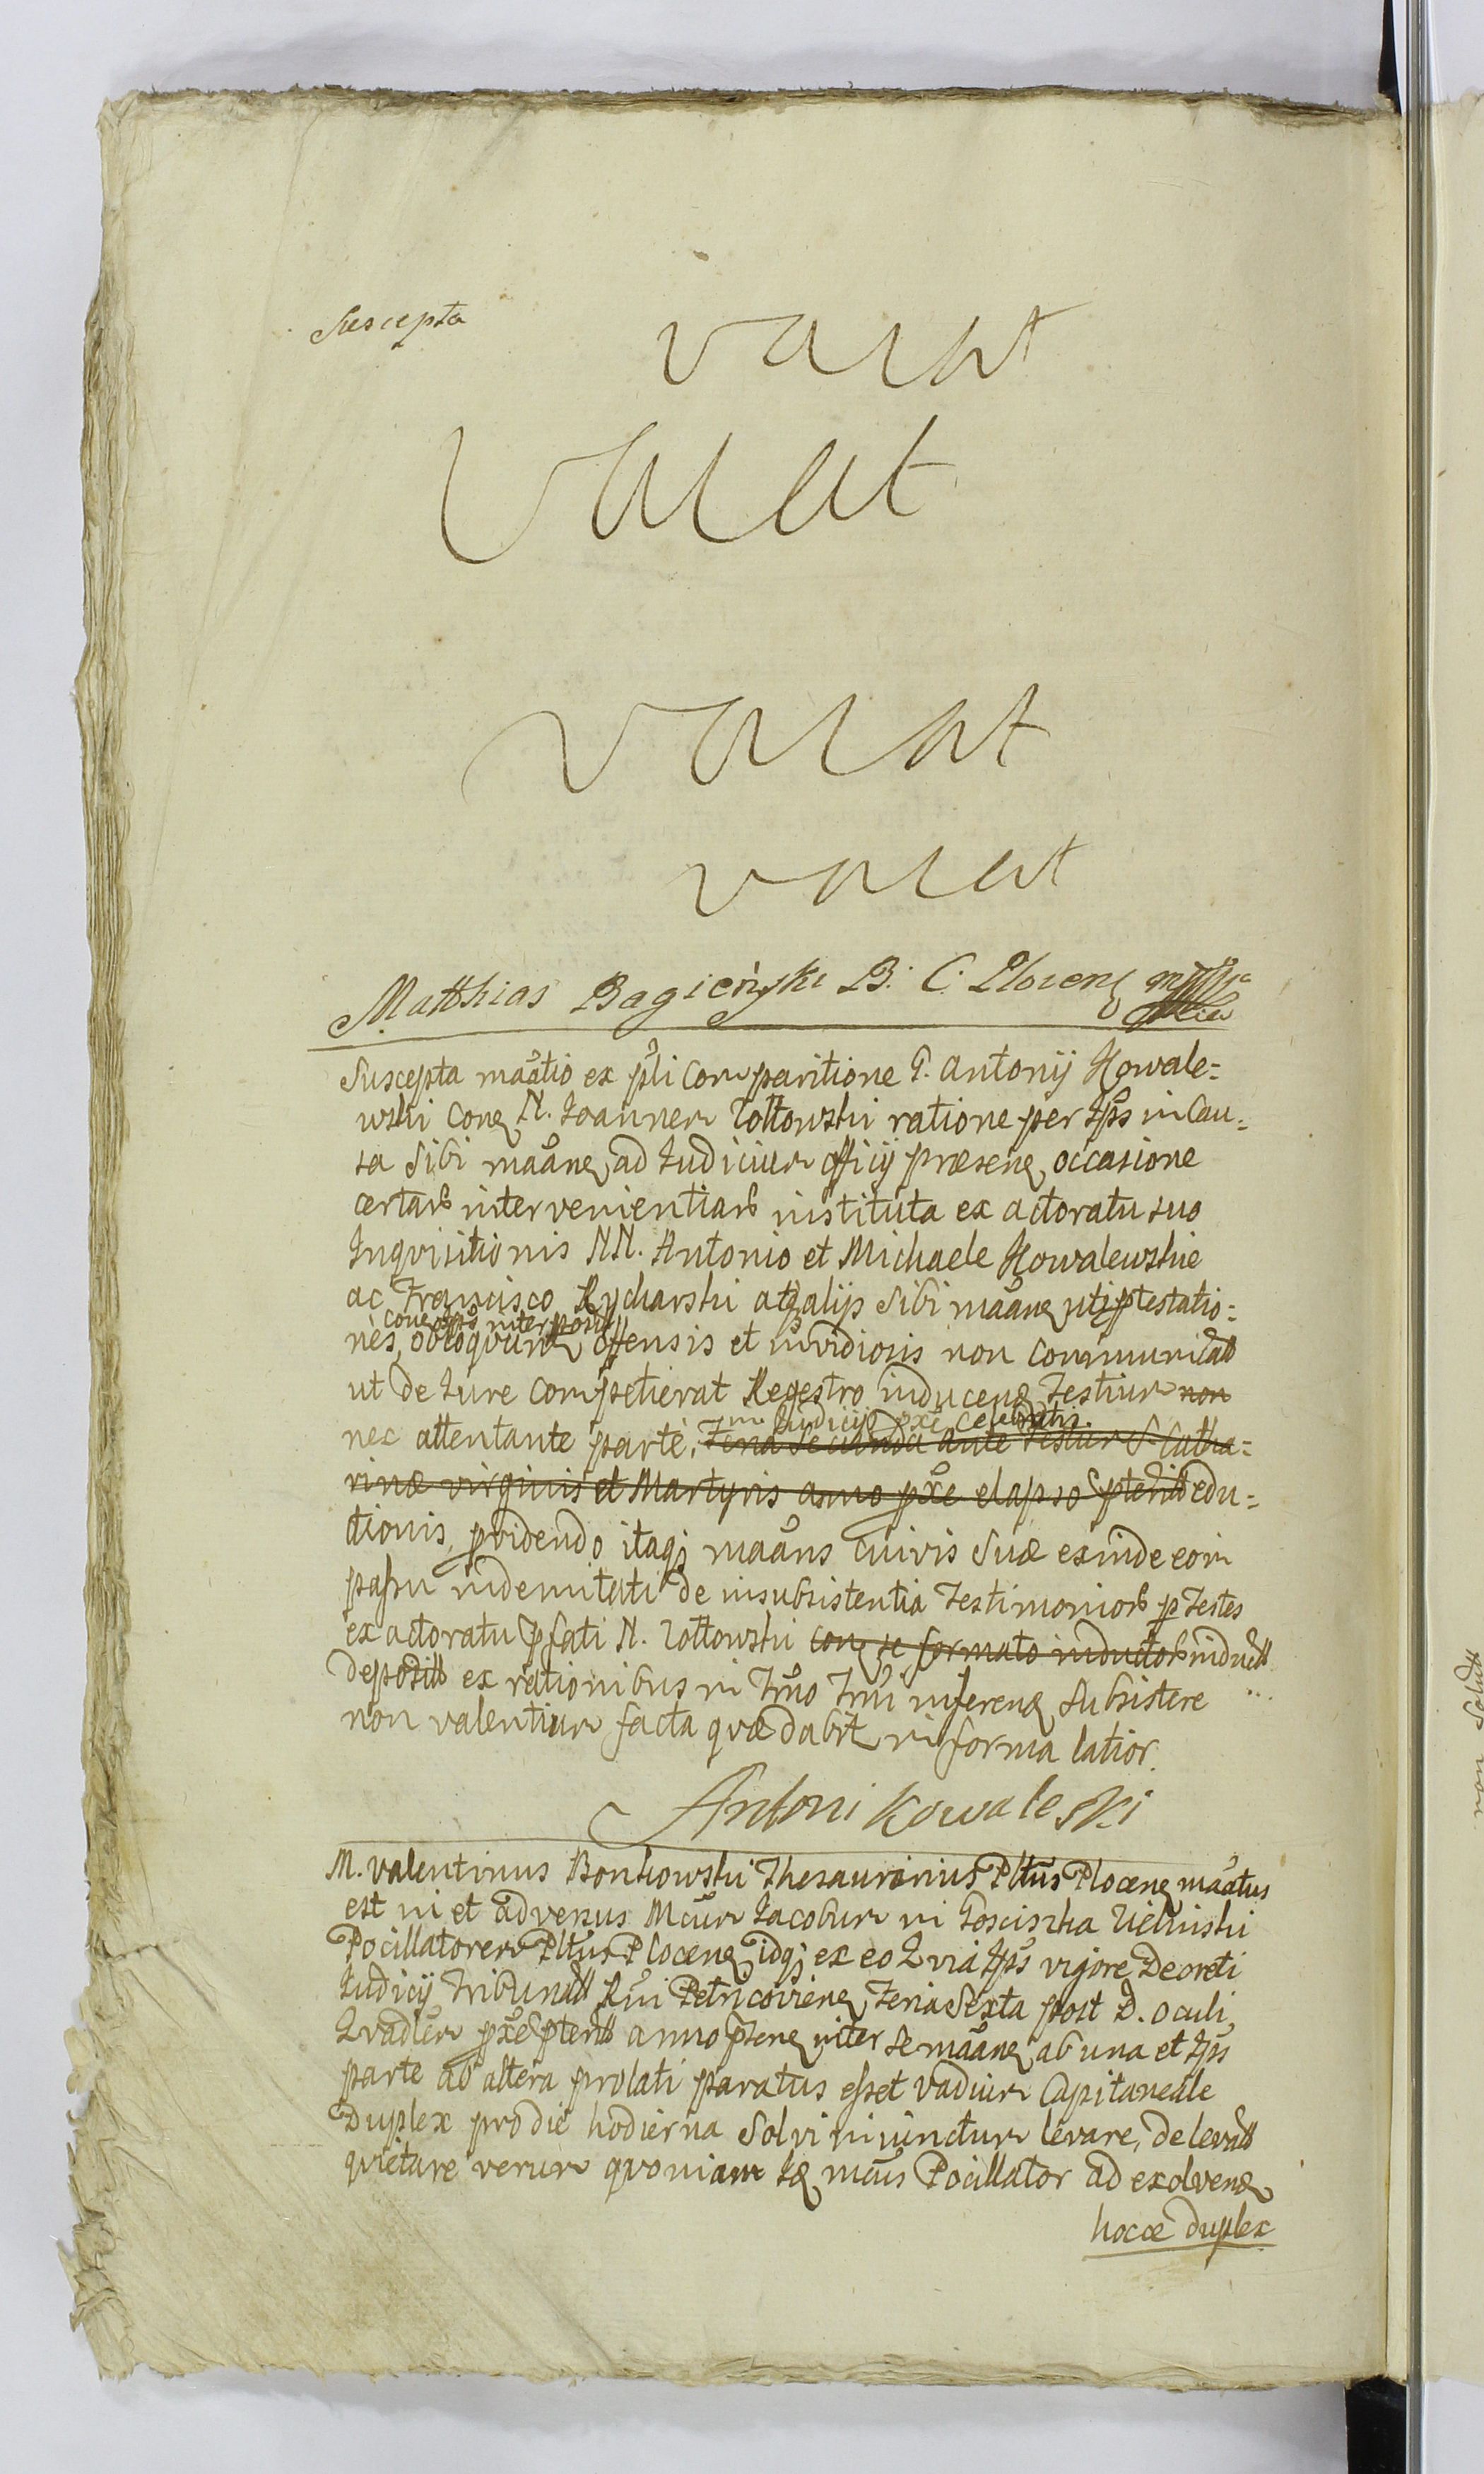 Suscepta
vacat
vacat
vacat
vacat
Matthias Bagieński B. C. Plocen
Suscepta maãtio ex pñli comparitione G. Antonij Kowale=
wski con N. Joannem Zołtowski ratione per Ips in Cau=
sa Sibi maãne ad Judicium officij præsen occasione
certarb intervenientiarb instituta ex actoratu suo
Inqvisitionis NN. Antonio et Michaele Kowalewskie
ac Francisco Rycharski atq alijs Sibi maãne uti ptestatio=
con Ips interposit
nes, obloqvund offensis et invidiosis non communicatt
ut de Jure competierat Regestro inducend Testium non
in Judicijs pxẽ celebratis
nec attentante parte, Feria Secunda ante Festum S. Catha=
rinæ virginis et Martyris anno pxẽ elapso Spteritt edu=
ctionis, pvidendo itaqȝ maãns cuivis Suæ exinde eom
passu indemnitati de insubsistentia Testimoniorb p Testes
ex actoratu pfati N. Zołtowski con se formato inductorb induct
deposit ex rationibus in Tmõ Tmi inferend Subsistere
non valentium facta qvæ dabit in forma latior.
Antoni Kowaleski
M. Valentinus Bonkowski Thesaurarius Pltũs Plocen maãtus
est in et adversus Mcum Jacobum in Gosciszka Zieliński
Pocillatorem Pltũs Plocen idqȝ ex eo Qvia Ips vigore Decreti
Judicij Tribunal Rñi Petricovien Feria Sexta post D. Oculi,
Qvadler pxẽ Spterit anno pten inter se maãne ab una et Ips
parte ab altera prolati paratus esset Vadium Capitaneale
Duplex pro die hodierna Solvi iniunctum levare, de levatt
qvietare verum qvoniam Id mcus Pocillator ad exolvend
hocce duplex